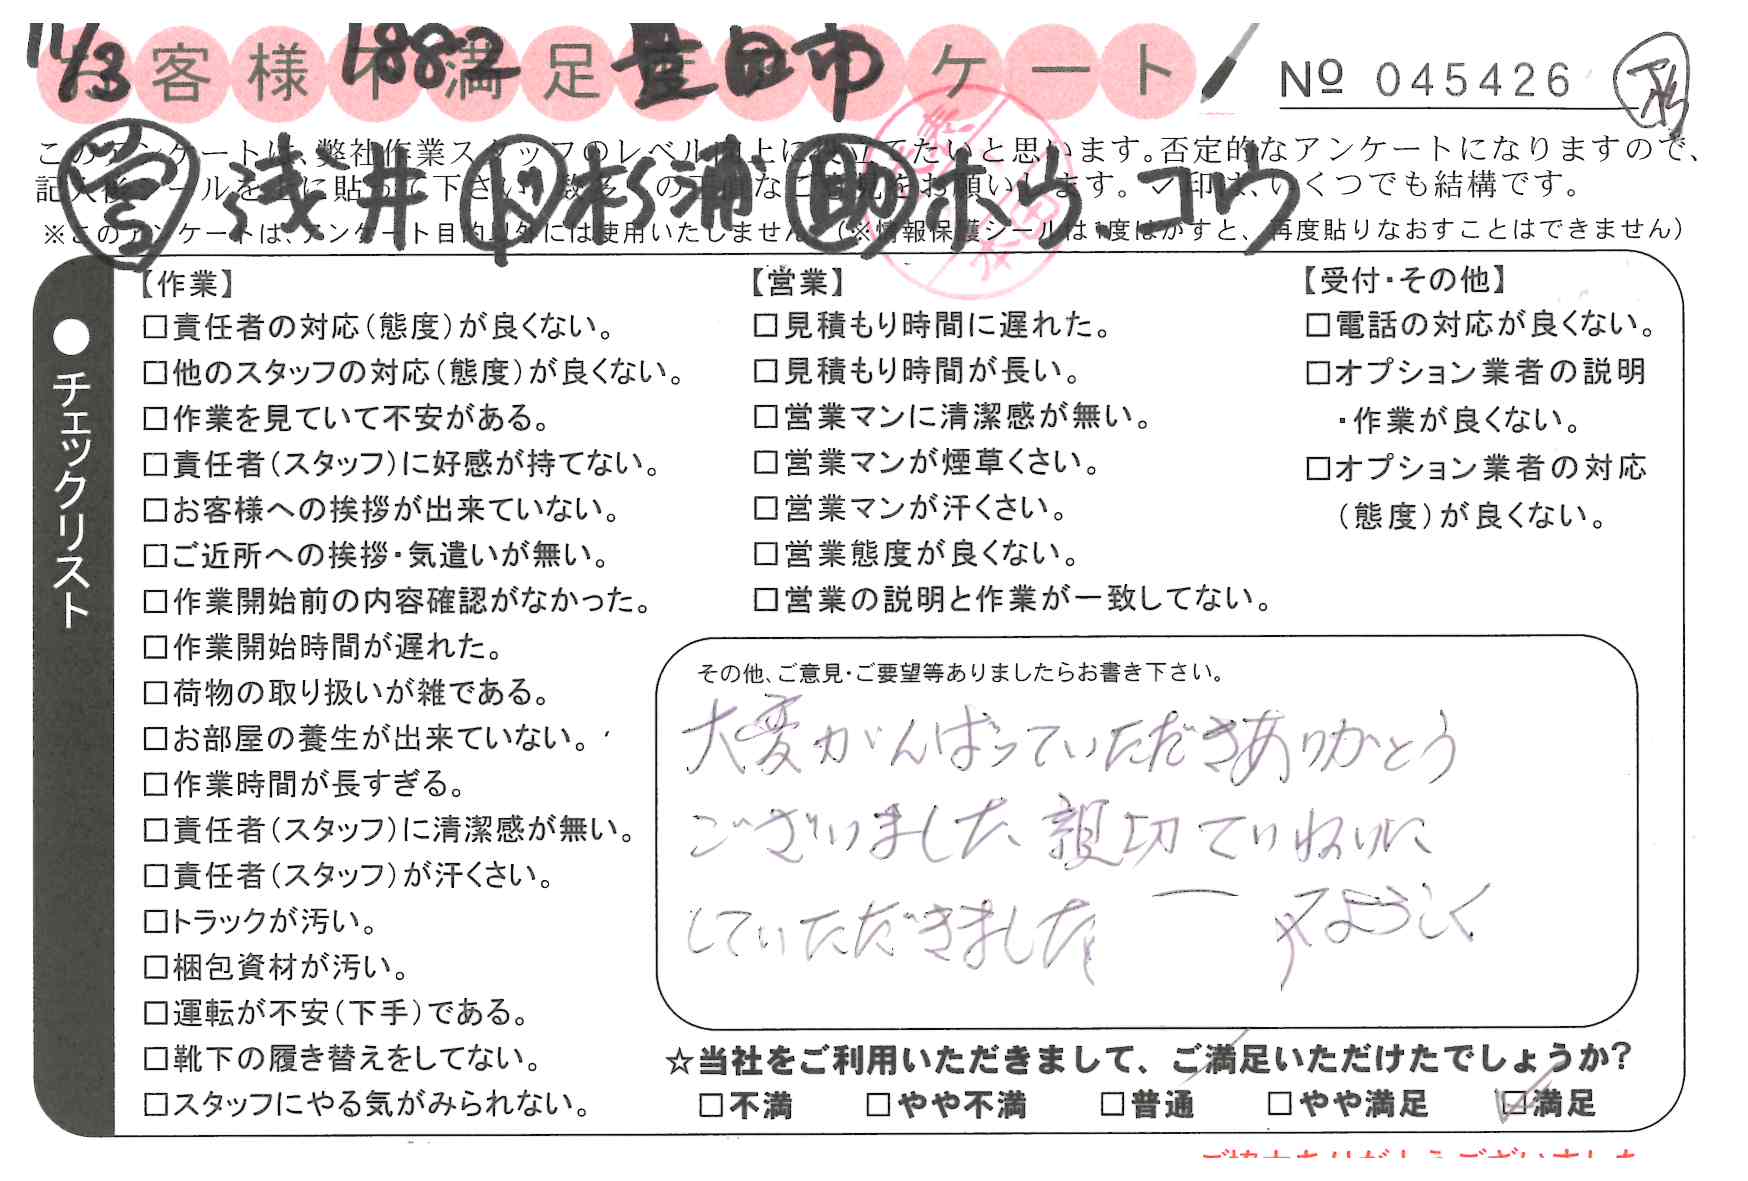 11/3 1882 豊田市
お客様不満足度アンケート
No 045426
このアンケートは、弊社作業スタッフのレベル向上に役立てたいと思います。否定的なアンケートになりますので、
記入後シールを上に貼って下さい。数多くの正直なご意見をお願いします。✓印は、いくつでも結構です。
営 浅井 杉浦 助 ホウ コウ
※このアンケートは、アンケート目的以外には使用いたしません。(※情報保護シールは1度はがすと、再度貼りなおすことはできません)
●チェックリスト
【作業】
□責任者の対応(態度)が良くない。
□他のスタッフの対応(態度)が良くない。
□作業を見ていて不安がある。
□責任者(スタッフ)に好感が持てない。
□お客様への挨拶が出来ていない。
□ご近所への挨拶・気遣いが無い。
□作業開始前の内容確認がなかった。
□作業開始時間が遅れた。
□荷物の取り扱いが雑である。
□お部屋の養生が出来ていない。
□作業時間が長すぎる。
□責任者(スタッフ)に清潔感が無い。
□責任者(スタッフ)が汗くさい。
□トラックが汚い。
□梱包資材が汚い。
□運転が不安(下手)である。
□靴下の履き替えをしてない。
□スタッフにやる気がみられない。
【営業】
□見積もり時間に遅れた。
□見積もり時間が長い。
□営業マンに清潔感が無い。
□営業マンが煙草くさい。
□営業マンが汗くさい。
□営業態度が良くない。
□営業の説明と作業が一致してない。
【受付・その他】
□電話の対応が良くない。
□オプション業者の説明
・作業が良くない。
□オプション業者の対応
(態度)が良くない。
その他、ご意見・ご要望等ありましたらお書き下さい。
大変がんばっていただきありがとう
ございました、親切ていねいに
していただきました
☆当社をご利用いただきまして、ご満足いただけたでしょうか?
□不満 □やや不満 □普通 □やや満足 ☑満足
ご協力ありがとうございました